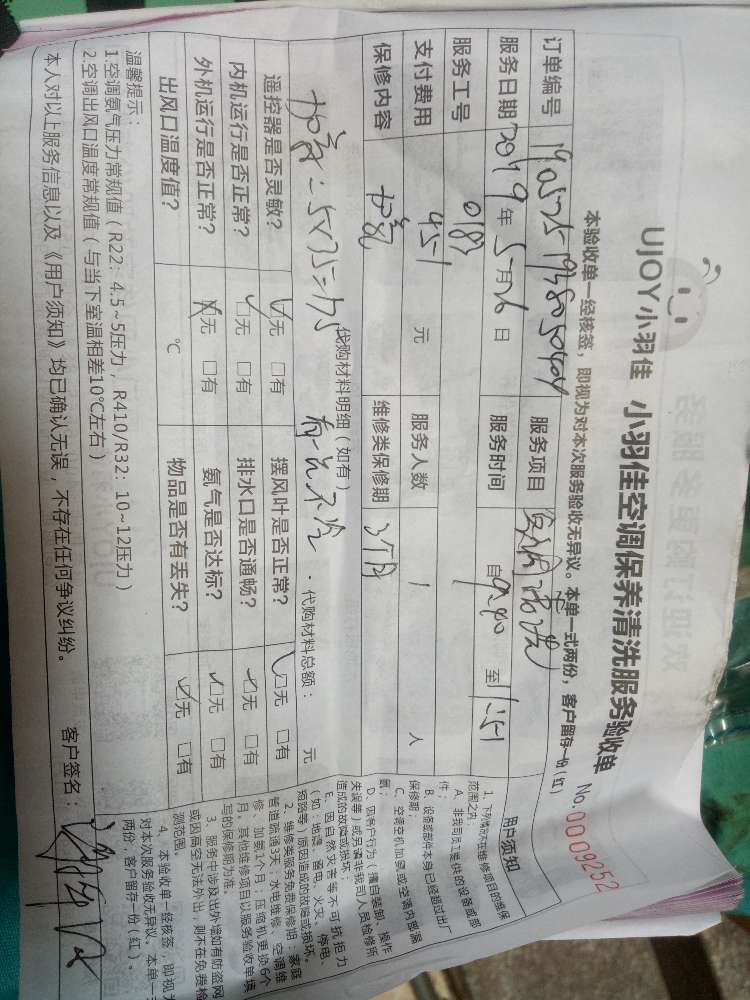 UJOY小羽佳 小羽佳空调保养清洗服务验收单 No.0009252
本验收单一经核签，即视为对本次服务验收无异议。本单一式两份，客户留存一份（红）
订单编号 服务项目
服务日期 2019年5月26日 服务时间 自 9:40 至 1:51
服务工号 0183
支付费用 451 元 服务人数 1 人
保修内容 加氨 维修类保修期 3个月
代购材料明细（如有） 代购材料总额： 元
遥控器是否灵敏？ ☑无 □有 摆风叶是否正常？ ☑无 □有
内机运行是否正常？ ☑无 □有 排水口是否通畅？ ☑无 □有
外机运行是否正常？ ☑无 □有 氨气是否达标？ ☑无 □有
出风口温度值？ ℃ 物品是否有丢失？ ☑无 □有
温馨提示：
1.空调氨气压力常规值（R22：4.5~5压力，R410/R32：10~12压力）
2.空调出风口温度常规值（与当下室温相差10℃左右）
本人对以上服务信息以及《用户须知》均已确认无误，不存在任何争议纠纷。 客户签名：
用户须知
1、下列情况不在维修项目的维保
范围之内：
A、非我司员工提供的设备或部
件；
B、设备或部件本身已经超过出厂
保修期；
C、空调充机加氨或空调内部漏
D、因客户行为（擅自装卸、操作
失误等）或另请非我司人员检修所
造成的故障或损坏；
E、因自然灾害等不可抗拒力
（如：地震、雷电、火灾、停电、
短路等）原因造成的故障或损坏。
2、维修类服务免费保修期：家庭
管道疏通3天；水电维修、空调维
修、加氨1个月；压缩机更换6个
月。其他维修项目以服务验收单填
写的保修期为准。
3、服务中涉及出外墙如有防盗网
或因高空无法外出，则不在免费检
测范围。
4、本验收单一经核签，即视为
对本次服务验收无异议。本单一式
两份，客户留存一份（红）。